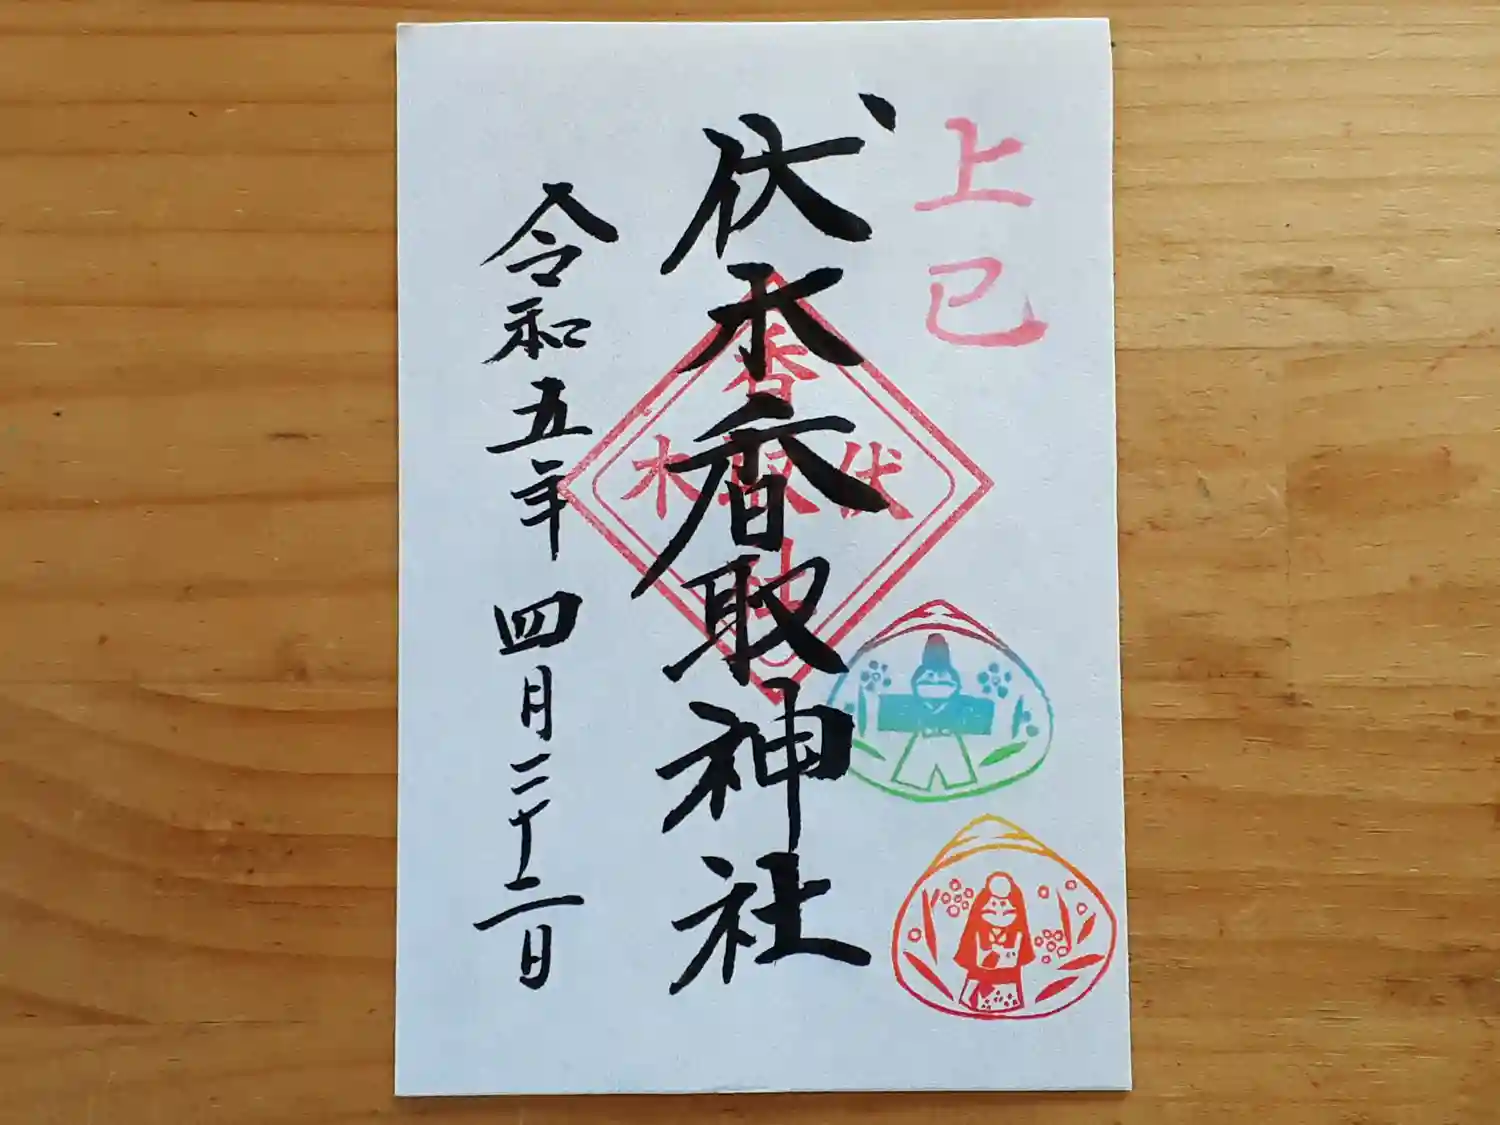 上巳
伏木香取神社
令和五年四月二十二日
伏木
香取社